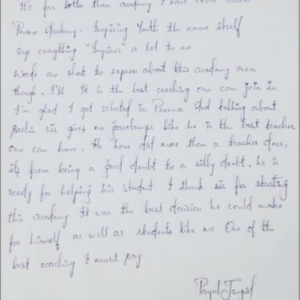 It's far better than academy I have ever
Prerna Academy - Inspiring Youth the name itself
say everything "Inspires" a lot to me
Words are short to express about this academy even
though, I'll It is the best coaching one can join in
I'm glad I got selected in Prerna And talking about
sir gives me goosebumps like he is the best teacher
one can have. He have did more than a teacher does,
it's from being a good doubt to a silly doubt, he is
ready for helping his student I thank sir for starting
this academy It was the best decision he could make
for himself as well as students like me One of the
best coaching I must say
Payal